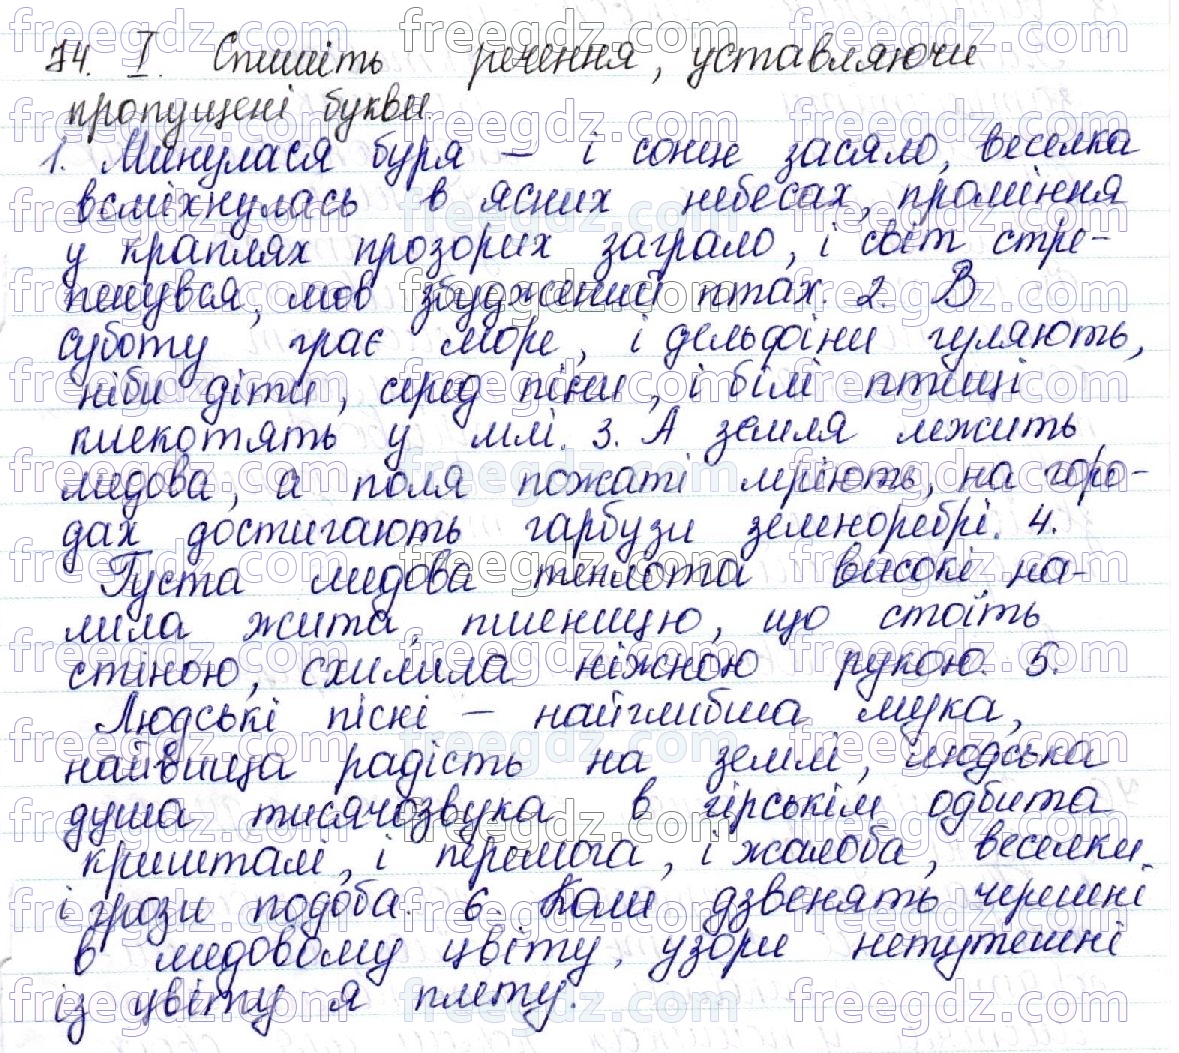 74. І. Спишіть речення, уставляючи
пропущені букви.
1. Минулася буря – і сонце засяло, веселка
всміхнулась в ясних небесах, проміння
у краплях прозорих заграло, і світ стре-
пенувся, мов збуджений птах. 2. В
суботу грає море, і дельфіни гуляють,
ніби діти, серед піни, і білі птиці
клекотять у млі. 3. А земля лежить
медова, а поля пожаті мріють, на горо-
дах достигають гарбузи зеленоребрі. 4.
Густа медова теплота високі на-
лила жита, пшеницю, що стоїть
стіною, схилила ніжною рукою. 5.
Людські пісні – найглибша мука,
найвища радість на землі, людська
душа тисячозвука в гірськім одбита
кришталі, і перемога, і жалоба, веселки
і грози подоба. 6. Коли дзвенять черешні
в медовому цвіту, узори нетутешні
із цвіту я плету.
freegdz.com